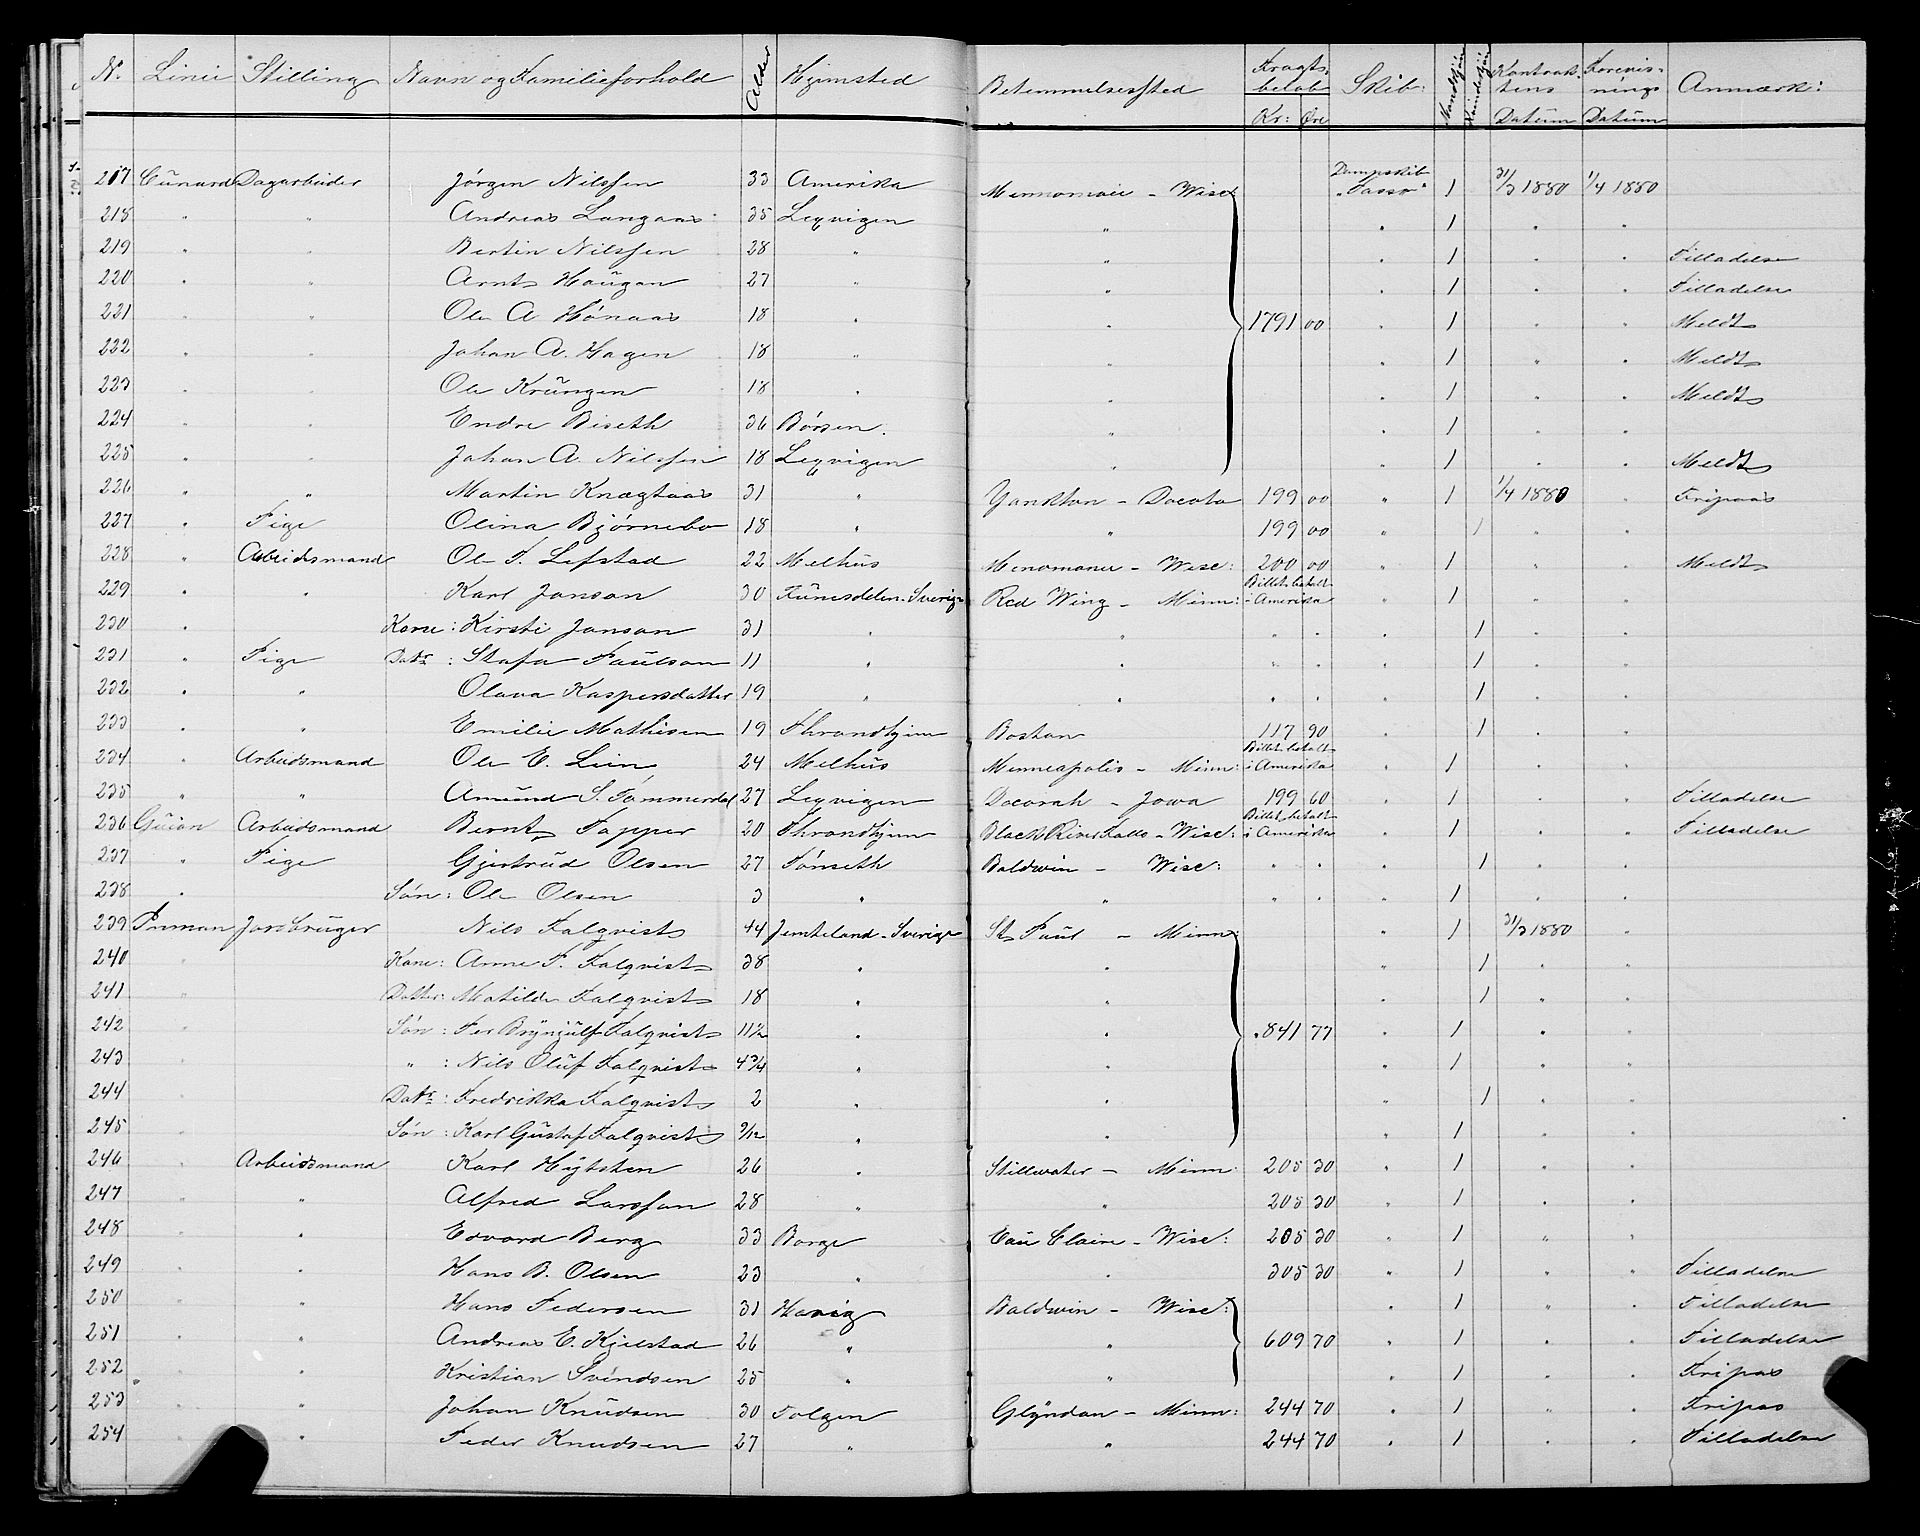 N. Linie Stilling Navn og Familieforhold Alder Hjemsted Bestemmelsessted Fragtbeløb Kr: Øre Skib: Mandkjøn Kvindekjøn Kontraktens Datum Forevisnings Datum Anmærk:
217 Cunard Dagarbeider Jørgen Nilssen 33 Amerika Mennomoie - Wisc Dampskib „Tasso“ 1 31/3 1880 1/4 1880
218 " " Andreas Langaas 35 Leqvigen " " 1 " "
219 " " Bertin Nilssen 28 " " " 1 " " Tilladelse
220 " " Arnt Haugan 27 " " " 1 " " Tilladelse
221 " " Ole A Hønaas 18 " " 1791 00 " 1 " " Meldt
222 " " Johan A. Hagen 18 " " " 1 " " Meldt
223 " " Ole Krüngen 18 " " " 1 " " Meldt
224 " " Endre Biseth 36 Børsen. " " 1 " "
225 " " Johan A. Nilssen 18 Leqvigen " " 1 " " Meldt
226 " " Martin Knægtaas 31 " Yankton - Dacota 199 00 " 1 1/4 1880 " Fripas
227 " Pige Olina Bjørnebo 18 " " 199 00 " 1 " "
228 " Arbeidsmand Ole P. Lefstad 22 Melhus Menomonee - Wisc: 200 00 " 1 " " Meldt
229 " " Karl Janson 30 Funesdalen - Sverige Red Wing - Minn: Billet betalt i Amerika " 1 " "
230 " Kone: Kirsti Janson 31 " " " " " 1 " "
231 " Pige Datr: Stafa Paulson 11 " " " " " 1 " "
232 " " Olava Kaspersdatter 19 " " " " " 1 " "
233 " " Emilie Mathisen 19 Throndhjem Boston 117 90 " 1 " "
234 " Arbeidsmand Ole E. Lien 24 Melhus Minneapolis - Minn: Billet betalt i Amerika " 1 " "
235 " " Amund S. Tømmerdal 27 Leqvigen Decorah - Jowa 199 60 " 1 " " Tilladelse
236 Guion Arbeidsmand Bernt Tapper 20 Throndhjem Black River Falls - Wisc: Billet betalt i Amerika " 1 " " Tilladelse
237 " Pige Gjertrud Olsen 27 Tønseth Baldwin - Wisc: " " " 1 " "
238 " Søn: Ole Olsen 3 " " " " " 1 " "
239 Inman Jordbruger Nils Falqvist 44 Jemteland - Sverige St. Paul - Minn: " 1 31/3 1880 "
240 " Kone: Anne P. Falqvist 38 " " " 1 " "
241 " Datter: Matilde Falqvist 18 " " " 1 " "
242 " Søn: Per Brynjulf Falqvist 11½ " " 841 77 " 1 " "
243 " " : Nils Oluf Falqvist 4¾ " " " 1 " "
244 " Datr: Fredrikka Falqvist 2 " " " 1 " "
245 " Søn: Karl Gustaf Falqvist 9/12 " " " 1 " "
246 " Arbeidsmand Karl Hytsten 26 " Stillwater - Minn: 205 30 " 1 " "
247 " " Alfred Larsson 28 " " 205 30 " 1 " "
248 " " Edvard Berg 33 Borge Eau Claire - Wisc: 205 30 " 1 " "
249 " " Hans B. Olsen 23 " " 305 30 " 1 " " Tilladelse
250 " " Hans Pedersen 31 Hevig Baldwin - Wisc: " 1 " " Tilladelse
251 " " Andreas E. Kjelstad 26 " " 609 70 " 1 " " Tilladelse
252 " " Kristian Svendsen 25 " " " 1 " " Fripas
253 " " Johan Knudsen 30 Tolgen Glyndon - Minn: 244 70 " 1 " " Fripas
254 " " Peder Knudsen 27 " " 244 70 " 1 " " Tilladelse